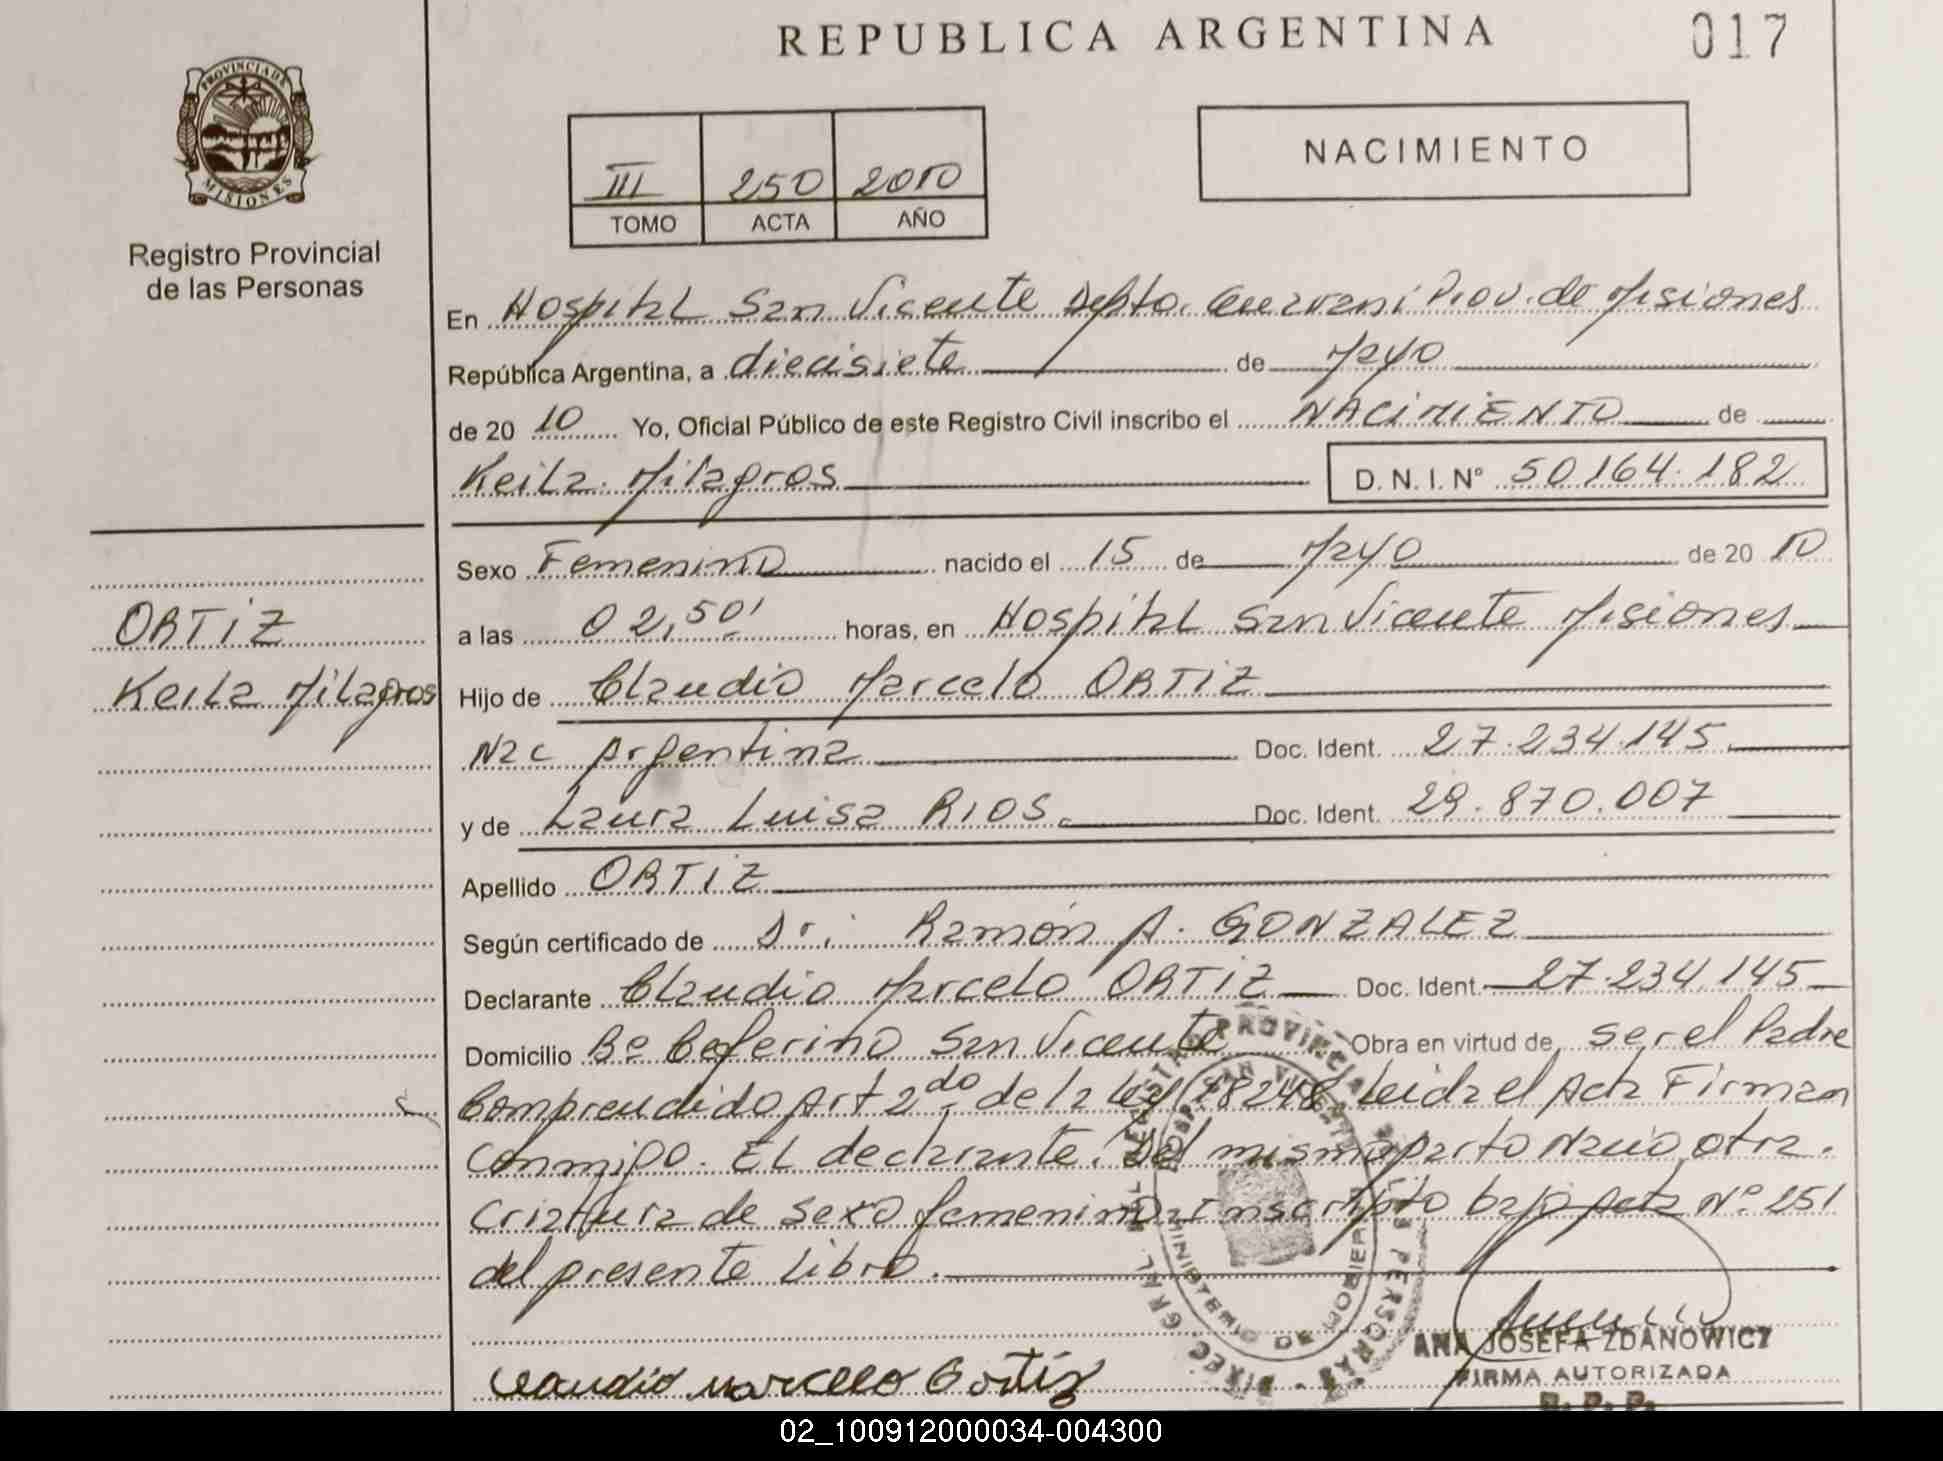 REPUBLICA ARGENTINA
017
PROVINCIA DE
MISIONES
Registro Provincial
de las Personas
III 250 2010
TOMO ACTA AÑO
NACIMIENTO
En Hospital San Vicente Depto. Guarani Prov. de Misiones
República Argentina, a diecisiete de Mayo
de 20 10 Yo, Oficial Público de este Registro Civil inscribo el NACIMIENTO de
Keila Milagros D. N. I. N° 50.164.182
Sexo Femenino nacido el 15 de Mayo de 20 10
a las 02,50' horas, en Hospital San Vicente Misiones
ORTiZ
Keila Milagros
Hijo de Claudio Marcelo ORTiZ
Nac Argentina Doc. Ident. 27.234.145
y de Laura Luisa RIOS. Doc. Ident. 29.870.007
Apellido ORTiZ
Según certificado de Dr: Ramón A. GONZALEZ
Declarante Claudio Marcelo ORTiZ Doc. Ident. 27.234.145
Domicilio B° Ceferino San Vicente Obra en virtud de ser el Padre
Comprendido Art 2do de la Ley 18248 Leida el Acta Firman
conmigo. EL declarante. Del mismo parto Nacio otra.
Criatura de sexo femenino Inscripto bajo Acta N° 251
del presente Libro.
Claudio Marcelo Ortiz
ANA JOSEFA ZDANOWICZ
FIRMA AUTORIZADA
R. P. P.
MINISTERIO DE GOBIERNO
02_100912000034-004300